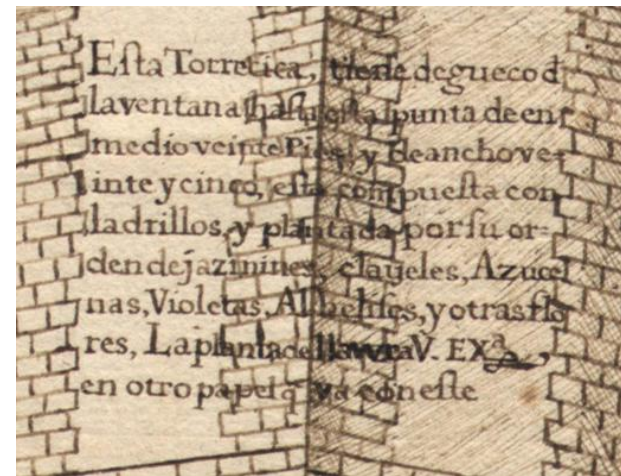 Esta Torretica, tiene de gueco d
la ventana hasta esta punta de en
medio veinte Pies, y de ancho ve-
inte y cinco, esta compuesta con
ladrillos, y plantada por su or=
den de jazmines, claveles, Azuce
nas, Violetas, Alhelises, y otras flo
res, La planta de V. EXª,
en otro papel q̃ va con este